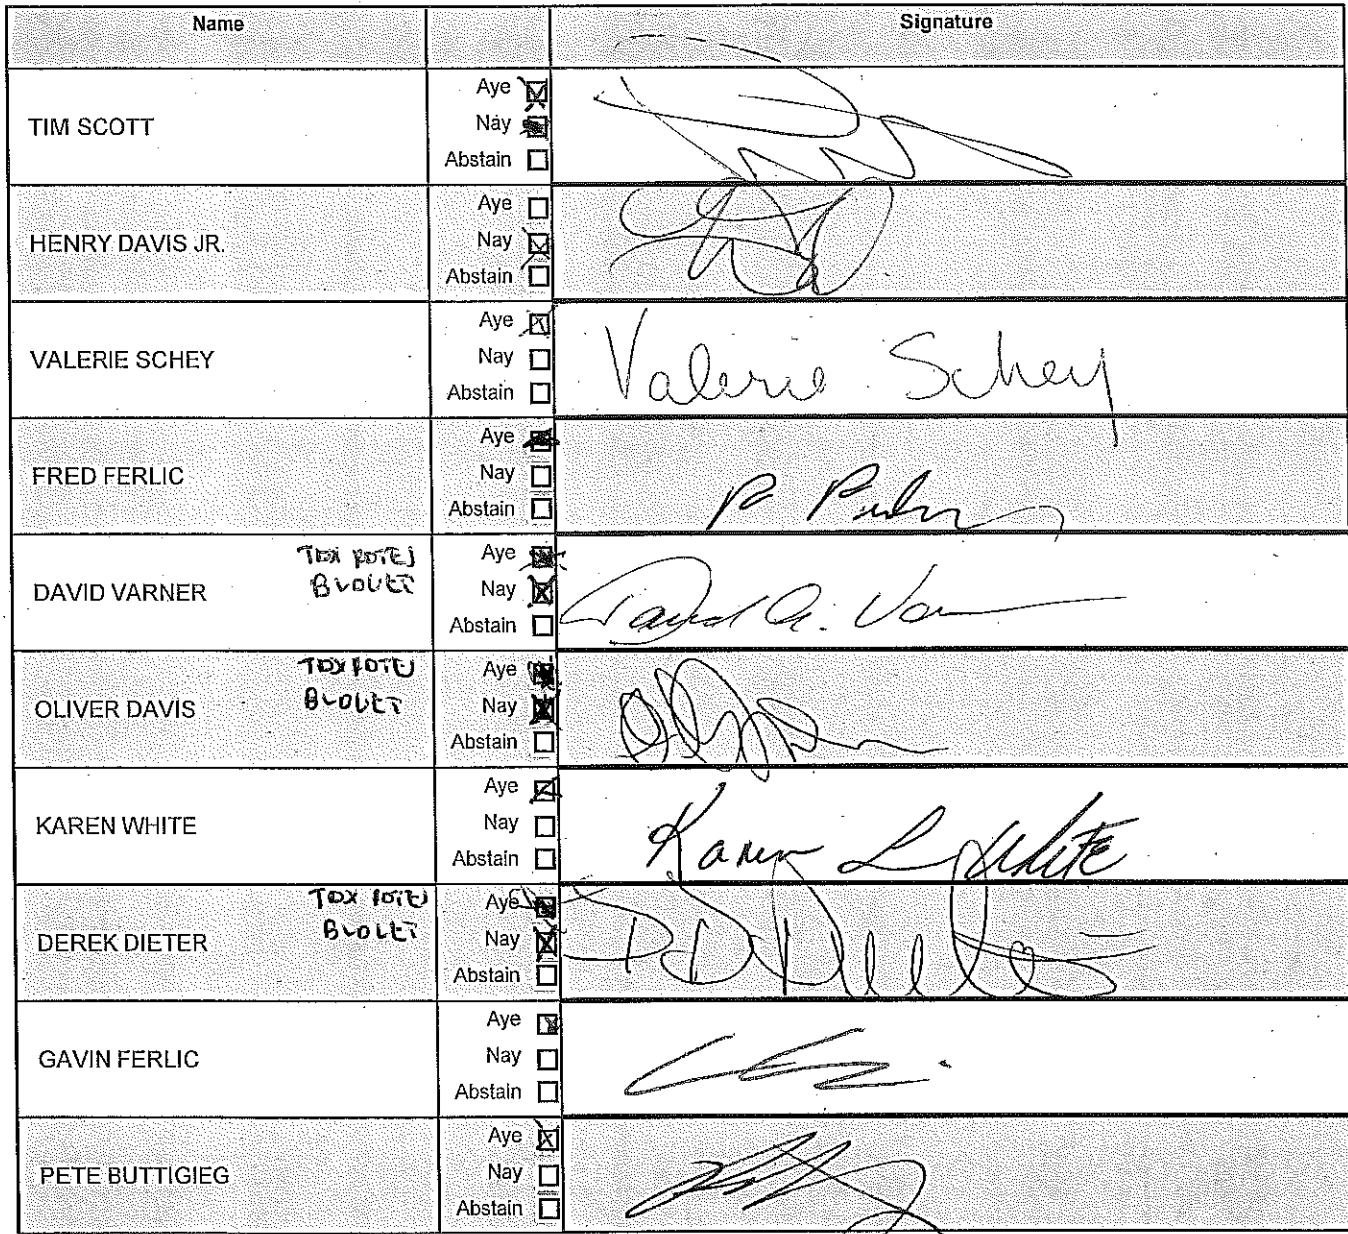 Name Signature
TIM SCOTT
Aye
Nay
Abstain
HENRY DAVIS JR.
Aye
Nay
Abstain
VALERIE SCHEY
Aye
Nay
Abstain
Valerie Schey
FRED FERLIC
Aye
Nay
Abstain
DAVID VARNER
Aye
Nay
Abstain
David A. Var
OLIVER DAVIS
Aye
Nay
Abstain
KAREN WHITE
Aye
Nay
Abstain
Karen L White
DEREK DIETER
Aye
Nay
Abstain
GAVIN FERLIC
Aye
Nay
Abstain
PETE BUTTIGIEG
Aye
Nay
Abstain